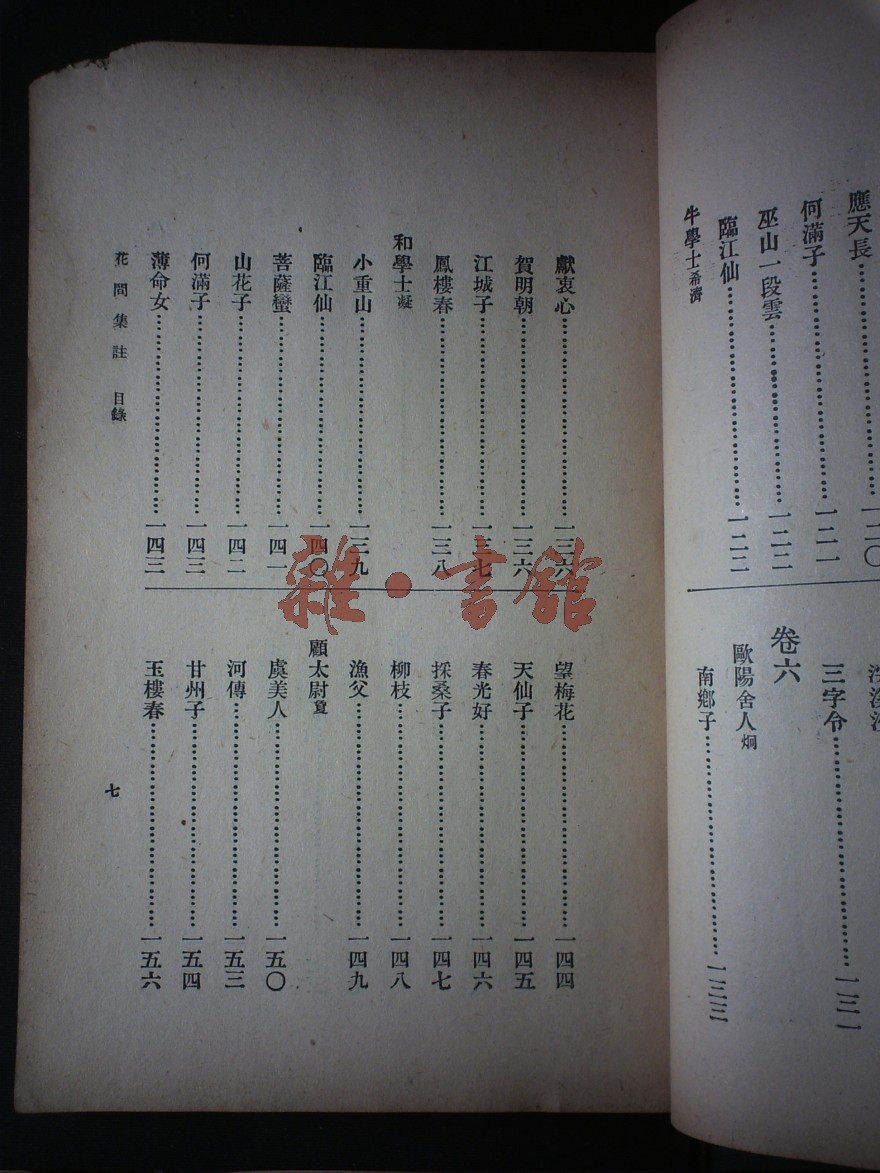 應天長……一二〇
何滿子……一二一
巫山一段雲……一二二
臨江仙……一二二
牛學士希濟
三字令……一三一
卷六
歐陽舍人炯
南鄉子……一三三
獻衷心……一三六
賀明朝……一三六
江城子……一三七
鳳樓春……一三八
和學士凝
小重山……一三九
臨江仙……一四〇
菩薩蠻……一四一
山花子……一四二
何滿子……一四三
薄命女……一四三
望梅花……一四四
天仙子……一四五
春光好……一四六
採桑子……一四七
柳枝……一四八
漁父……一四九
顧太尉敻
虞美人……一五〇
河傳……一五三
甘州子……一五四
玉樓春……一五六
花間集註 目錄
七
雜·書館